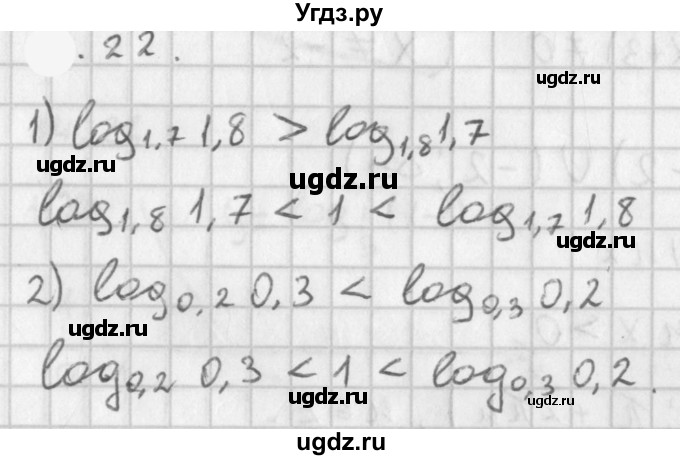 Угдз.ру
.22.
1) log₁,₇ 1,8 > log₁,₈ 1,7
ugdz.ru
ugdz.ru
log₁,₈ 1,7 < 1 < log₁,₇ 1,8
ugdz.ru
2) log₀,₂ 0,3 < log₀,₃ 0,2
ugdz.ru
log₀,₂ 0,3 < 1 < log₀,₃ 0,2.
ugdz.ru
ugdz.ru
ugdz.ru